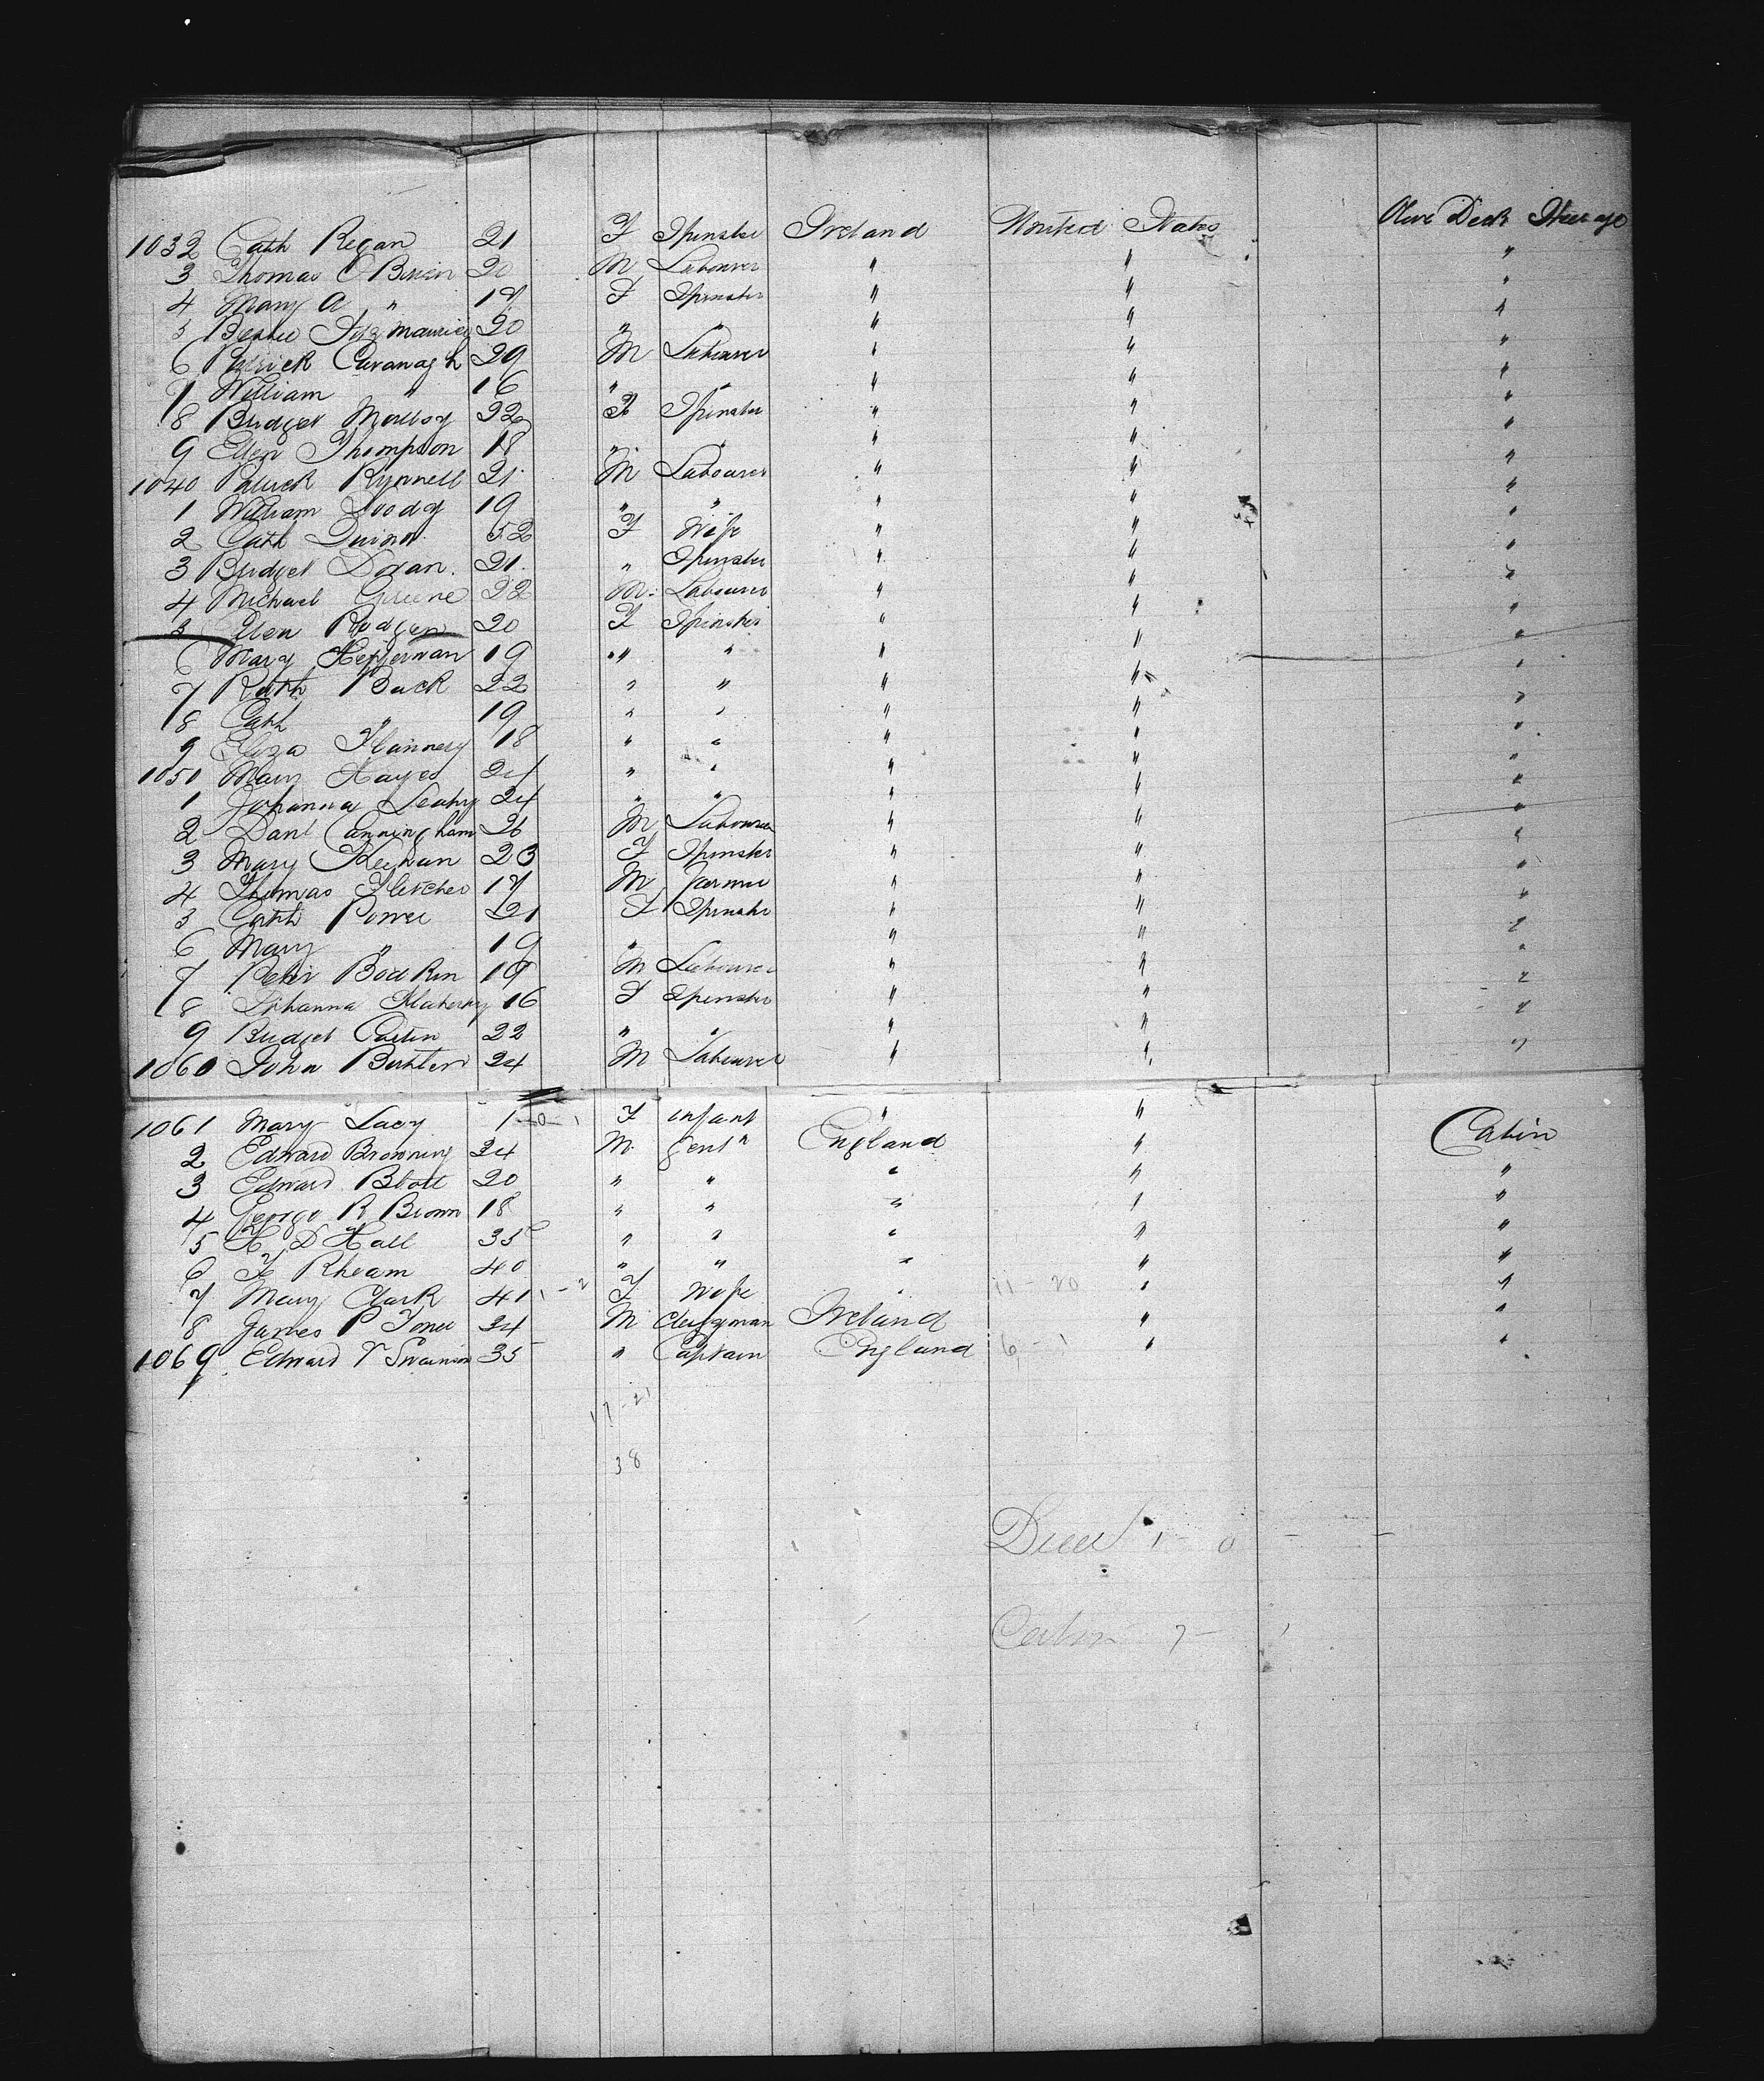 1032 Cath Regan 21 F Spinster Ireland United States Olive Deck Steerage
3 Thomas O Brien 20 M Labourer " " "
4 Mary A " 17 F Spinster " " "
5 Bessie Fitzmaurice 20 " " " " "
6 Patrick Cavanagh 29 M Labourer " " "
7 William " 16 " " " " "
8 Bridget Molloy 22 F Spinster " " "
9 Ellen Thompson 18 " " " " "
1040 Patrick Rynnell 21 M Labourer " " "
1 William 19 " " " " "
2 Cath Quinn 52 F Wife " " "
3 Bridget Dolan 21 " Spinster " " "
4 Michael Greene 22 M Labourer " " "
5 Ellen Rodgers 20 F Spinster " " "
6 Mary Heffernan 19 " " " " "
7 Kath Buck 22 " " " " "
8 Cath " 19 " " " " "
9 Eliza Flannery 18 " " " " "
1050 Mary Hayes 24 " " " " "
1 Johanna Leahy 24 " " " " "
2 Danl Cunningham 26 M Labourer " " "
3 Mary Keehan 23 F Spinster " " "
4 Thomas Fletcher 17 M Farmer " " "
5 Cath Power 21 F Spinster " " "
6 Mary " 19 " " " "
7 Peter Bodkin 19 M Labourer " " "
8 Johanna Flaherty 16 F Spinster " " "
9 Bridget 22 " " " " "
1060 John 24 M Labourer " " "
1061 Mary Lacy 1 F infant " "
2 Edward Browning 24 M Gentn England " Cabin
3 Edward 20 " " " " "
4 George R Brown 18 " " " " "
5 H D Hall 35 " " " " "
6 F Rheam 40 " " " " "
7 Mary Clark 41 F Wife " 11-20 " "
8 James P 24 M Clergyman Ireland " "
1069 Edward T Swainson 35 " Captain England 6-1 " "
17-21
38
1-0
Cabin 7-1